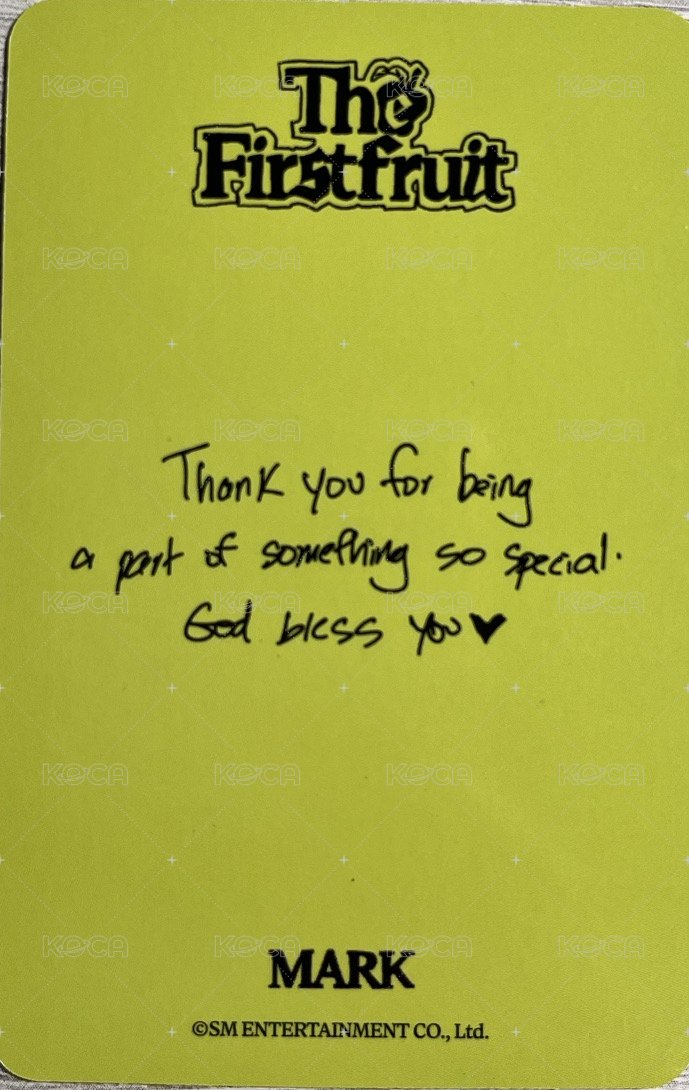 The
Firstfruit
Thank you for being
a part of something so special.
God bless you♥
MARK
©SM ENTERTAINMENT CO., Ltd.
KOCA